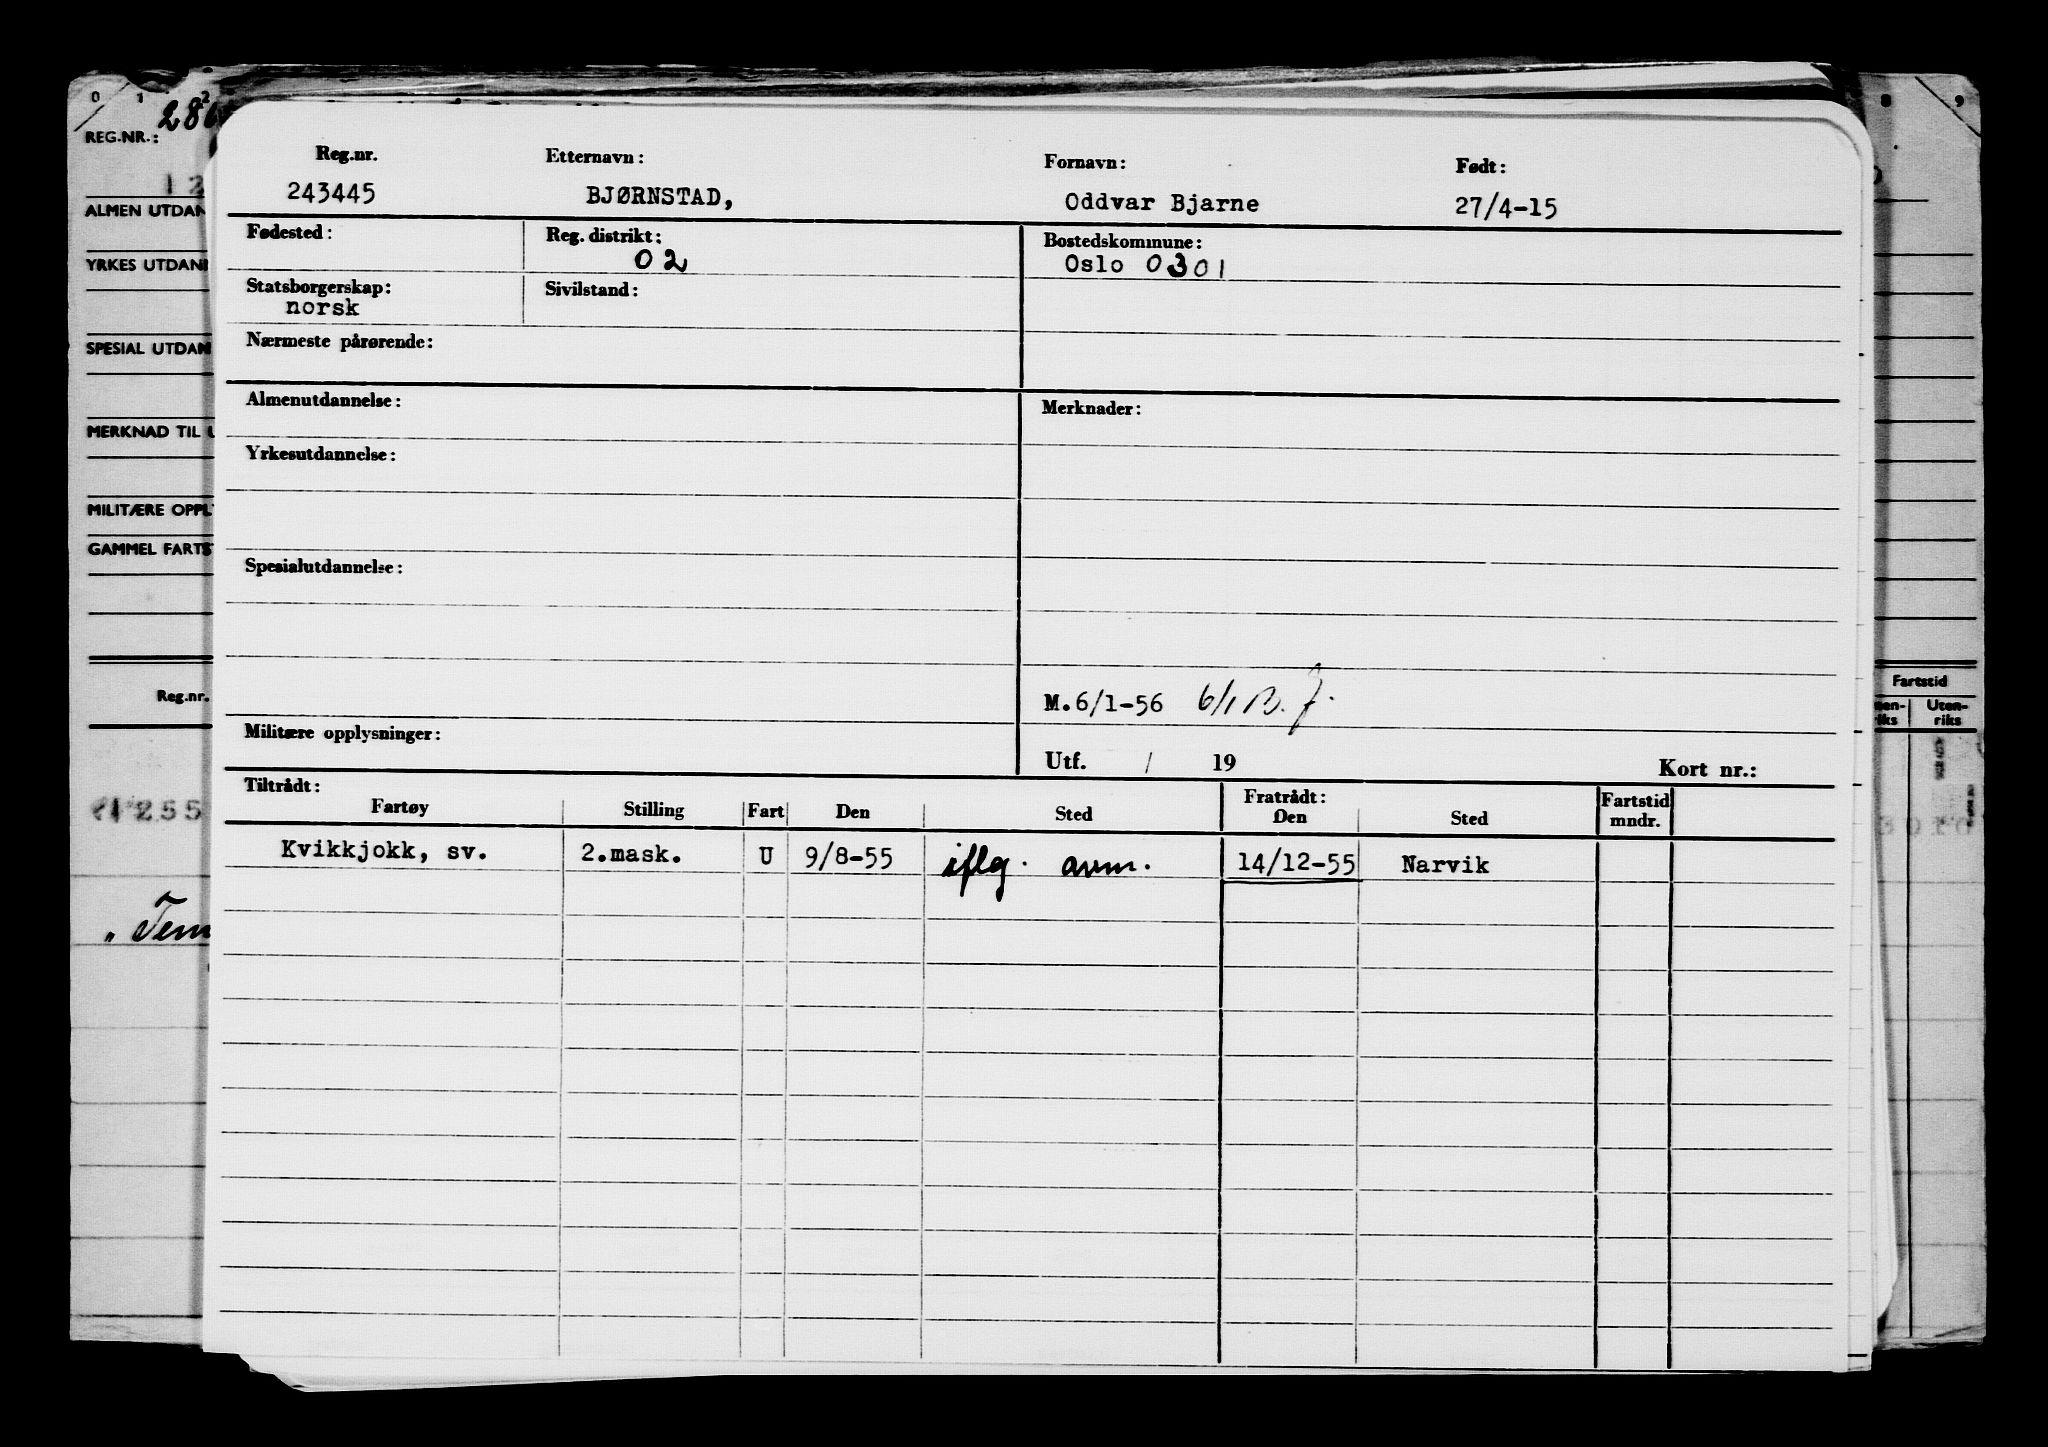 0 1 2
8 9
REG.NR.:
ALMEN UTDAN
YRKES UTDAN
SPESIAL UTDAN
MERKNAD TIL U
MILITÆRE OPPLY
GAMMEL FARTS
Reg.nr.
1255
„Tem
Fartstid
Uten-
riks
Reg.nr. Etternavn: Fornavn: Født:
243445 BJØRNSTAD, Oddvar Bjarne 27/4-15
Fødested: Reg. distrikt: Bostedskommune:
02 Oslo 0301
Statsborgerskap: Sivilstand:
norsk
Nærmeste pårørende:
Almenutdannelse: Merknader:
Yrkesutdannelse:
Spesialutdannelse:
M.6/1-56 6/1 B.J.
Militære opplysninger:
Utf. / 19 Kort nr.:
Tiltrådt: Fratrådt: Fartstid
Fartøy Stilling Fart Den Sted Den Sted mndr.
Kvikkjokk, sv. 2.mask. U 9/8-55 iflg. avm. 14/12-55 Narvik